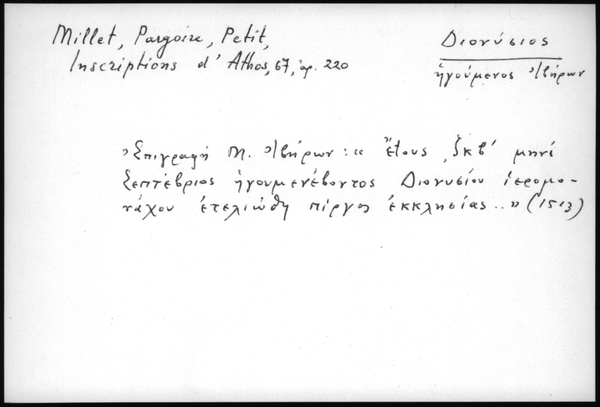 Millet, Pargoire, Petit,
Inscriptions d'Athos, 67, ἀρ. 220
Διονύσιος
ἡγούμενος Ἰβήρων
Ἐπιγραφή Μ. Ἰβήρων: « Ἔτους ͵ζκβ' μηνί
Σεπτέβριος ἡγουμενέβοντος Διονυσίου ἱερομο-
νάχου ἐτελιώθη πίργος ἐκκλησίας..» (1513)